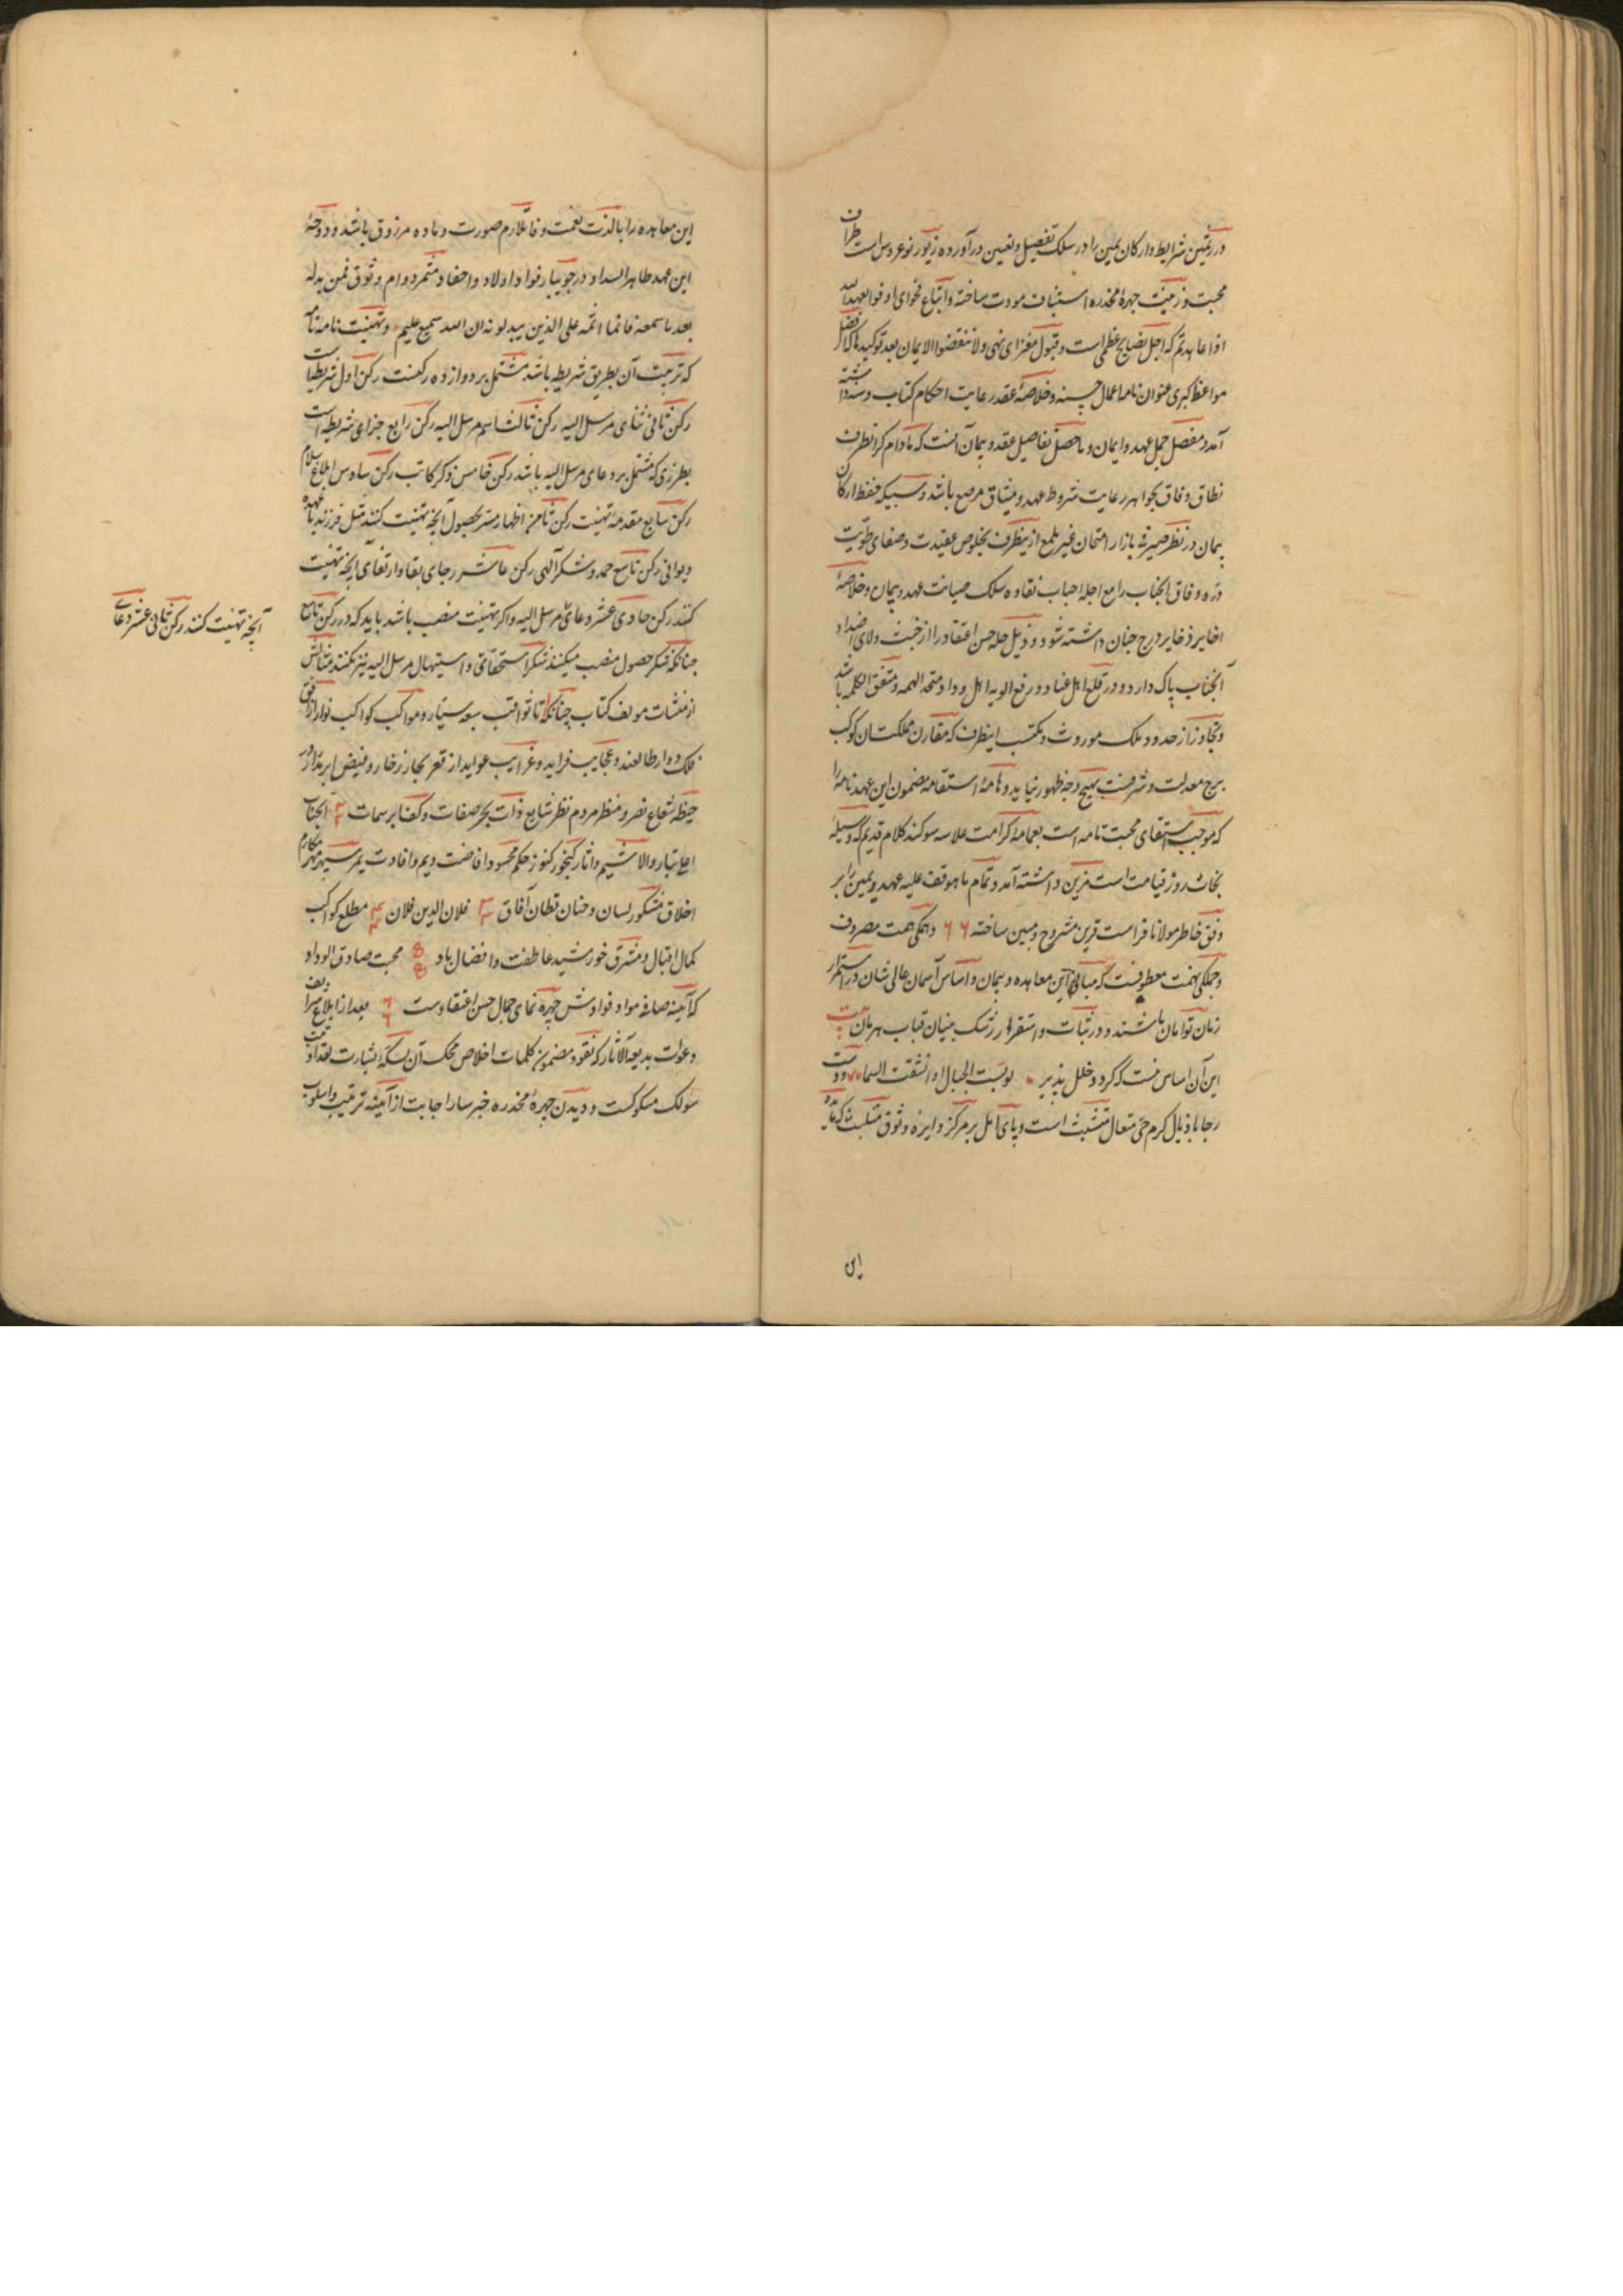 در ثمین شرایط و ارکان یمین را در سلک تفصیل و تعیین درآورده زیور نوعروس است طران
محبت و زینت چهرهٔ مخدره استیناف مودت ساخته و اتباع فحوای اوفوا بعهد الله
اذا عاهدتم که اجل نصایح عظمی است و قبول مغزای نهی ولا تنقضوا الایمان بعد توکیدها که افضل
مواعظ کبری عنوان نامه اعمال حسنه و خلاصهٔ عقد رعایت احکام کتاب و سنه داشته
آمد و مفصل جمل عهد و ایمان و ماحصل تفاصیل عقد و پیمان آنست که مادام کز انطرف
نطاق وفاق بجواهر رعایت شروط عهد و میثاق مرصع باشد و سبیکه حفظ ارکان
پیمان در نظر صیرفی بازار امتحان غیر ملمع ازینطرف بخلوص عقیدت و صفای طویت
دره وفاق انجناب را مع اجله احباب نقاوه سلک صیانت عهد و پیمان و خلاصهٔ
اخایر ذخایر درج جنان داشته شود و ذیل حله حسن اعتقاد را از خبث ولای اضداد
آنجناب پاک دارد و در قلع اهل عناد و رفع الویه اهل وداد متحد الهمه و متفق الکلمه باشد
و تجاوز از حدود ملک موروث و مکتسب اینطرف که مقارن مملکتسان کوکب
برج معدلت و شرفست بهیچ وجه ظهور نیابد و هامهٔ استقامه مضمون این عهدنامه را
که موجب استقای محبت تامه است بعمامهٔ کرامت علامه سوکند کلام قدیم که وسیلهٔ
نجات روز قیامت است مزین داشته آمد و تمام ماهوقف علیه عهد و یمین را بر
وفق خاطر مولانا فراست قرین مشروح و مبین ساخته و همکی همت مصروف
و جملکی نهمت معطوفست که مبانی این معاهده و پیمان و اساس آسمان عالی شان در استمرار
زمان توامان باشند و در ثبات و استقرار رشک بنیان قباب هرمان بیت
این آن اساس نیست که کردد خلل پذیر لو بست الجبال او انشقت السماء ودست
رجا باذیال کرم حی متعال متشبث است و پای امل بر مرکز دایره وثوق که مایده
این
این معاهده را بالذت نعمت و فا تلازم صورت و ماده مرزوق باشد و دوحهٔ
این عهد طاهر السداد در جویبار فواد اولاد و احفاد مثمر دوام وثوق فمن بدله
بعد ماسمعه فانما اثمه علی الذین یبدلونه ان الله سمیع علیم و تهنیت نامه تام
که ترتیب آن بطریق شریطه باشد مشتمل بر دوازده رکنست رکن اول شریطه است
رکن ثانی ثنای مرسل الیه رکن ثالث اسم مرسل الیه رکن رابع جزای شریطه است
بطرزی که مشتمل بر دعای مرسل الیه باشد رکن خامس ذکر کاتب رکن سادس ابلاغ سلام
رکن سابع مقدمهٔ تهنیت رکن ثامن اظهار مسرت بحصول آنچه تهنیت کنند مثل فرزند یا عهده
دیوانی رکن تاسع حمد و شکر الهی رکن عاشر رجای بقا و ارتقای آنچه تهنیت
کنند رکن حادی عشر دعای مرسل الیه و اکر تهنیت منصب باشد باید که در رکن تاسع
چنانکه شکر حصول منصب میکنند شکر استحقاق و استیهال مرسل الیه نیز بکنند مثالش
از منشات مولف کتاب چنانکه تا ثواقب سبعه سیاره و مواکب کواکب نوار از افق
فلک دوار طالعند و عجایب فراید و غرایب عواید از قعر بحار زخار و فیض ابر مدرار
حیطه شعاع بصر و منظر مردم نظر شایع ذات بحر صفات و کف ابر سمات انجناب
اعلی تبار والا شیم و انار کنجور کنوز حکم محسود افاضت دیم و افادت یم سپهر مهر مکارم
اخلاق مشکور لسان و جنان قطان آفاق فلان الدین فلان مطلع کواکب
کمال اقبال و مشرق خورشید عاطفت و افضال باد محبت صادق الوداد
که آیینه صافی مواد فوادش چهره نمای جمال حسن اعتقادست بعد از ابلاغ شرایف
دعوات بدیعه الاثار که نقود مضمون کلمات اخلاص محک آن بسکهٔ بشارت
مسکوکست و دیدن چهرهٔ مخدره خبر سار اجابت از آیینه ترتیب و اسلوب
آنچه تهنیت کنند رکن ثانی عشر دعای